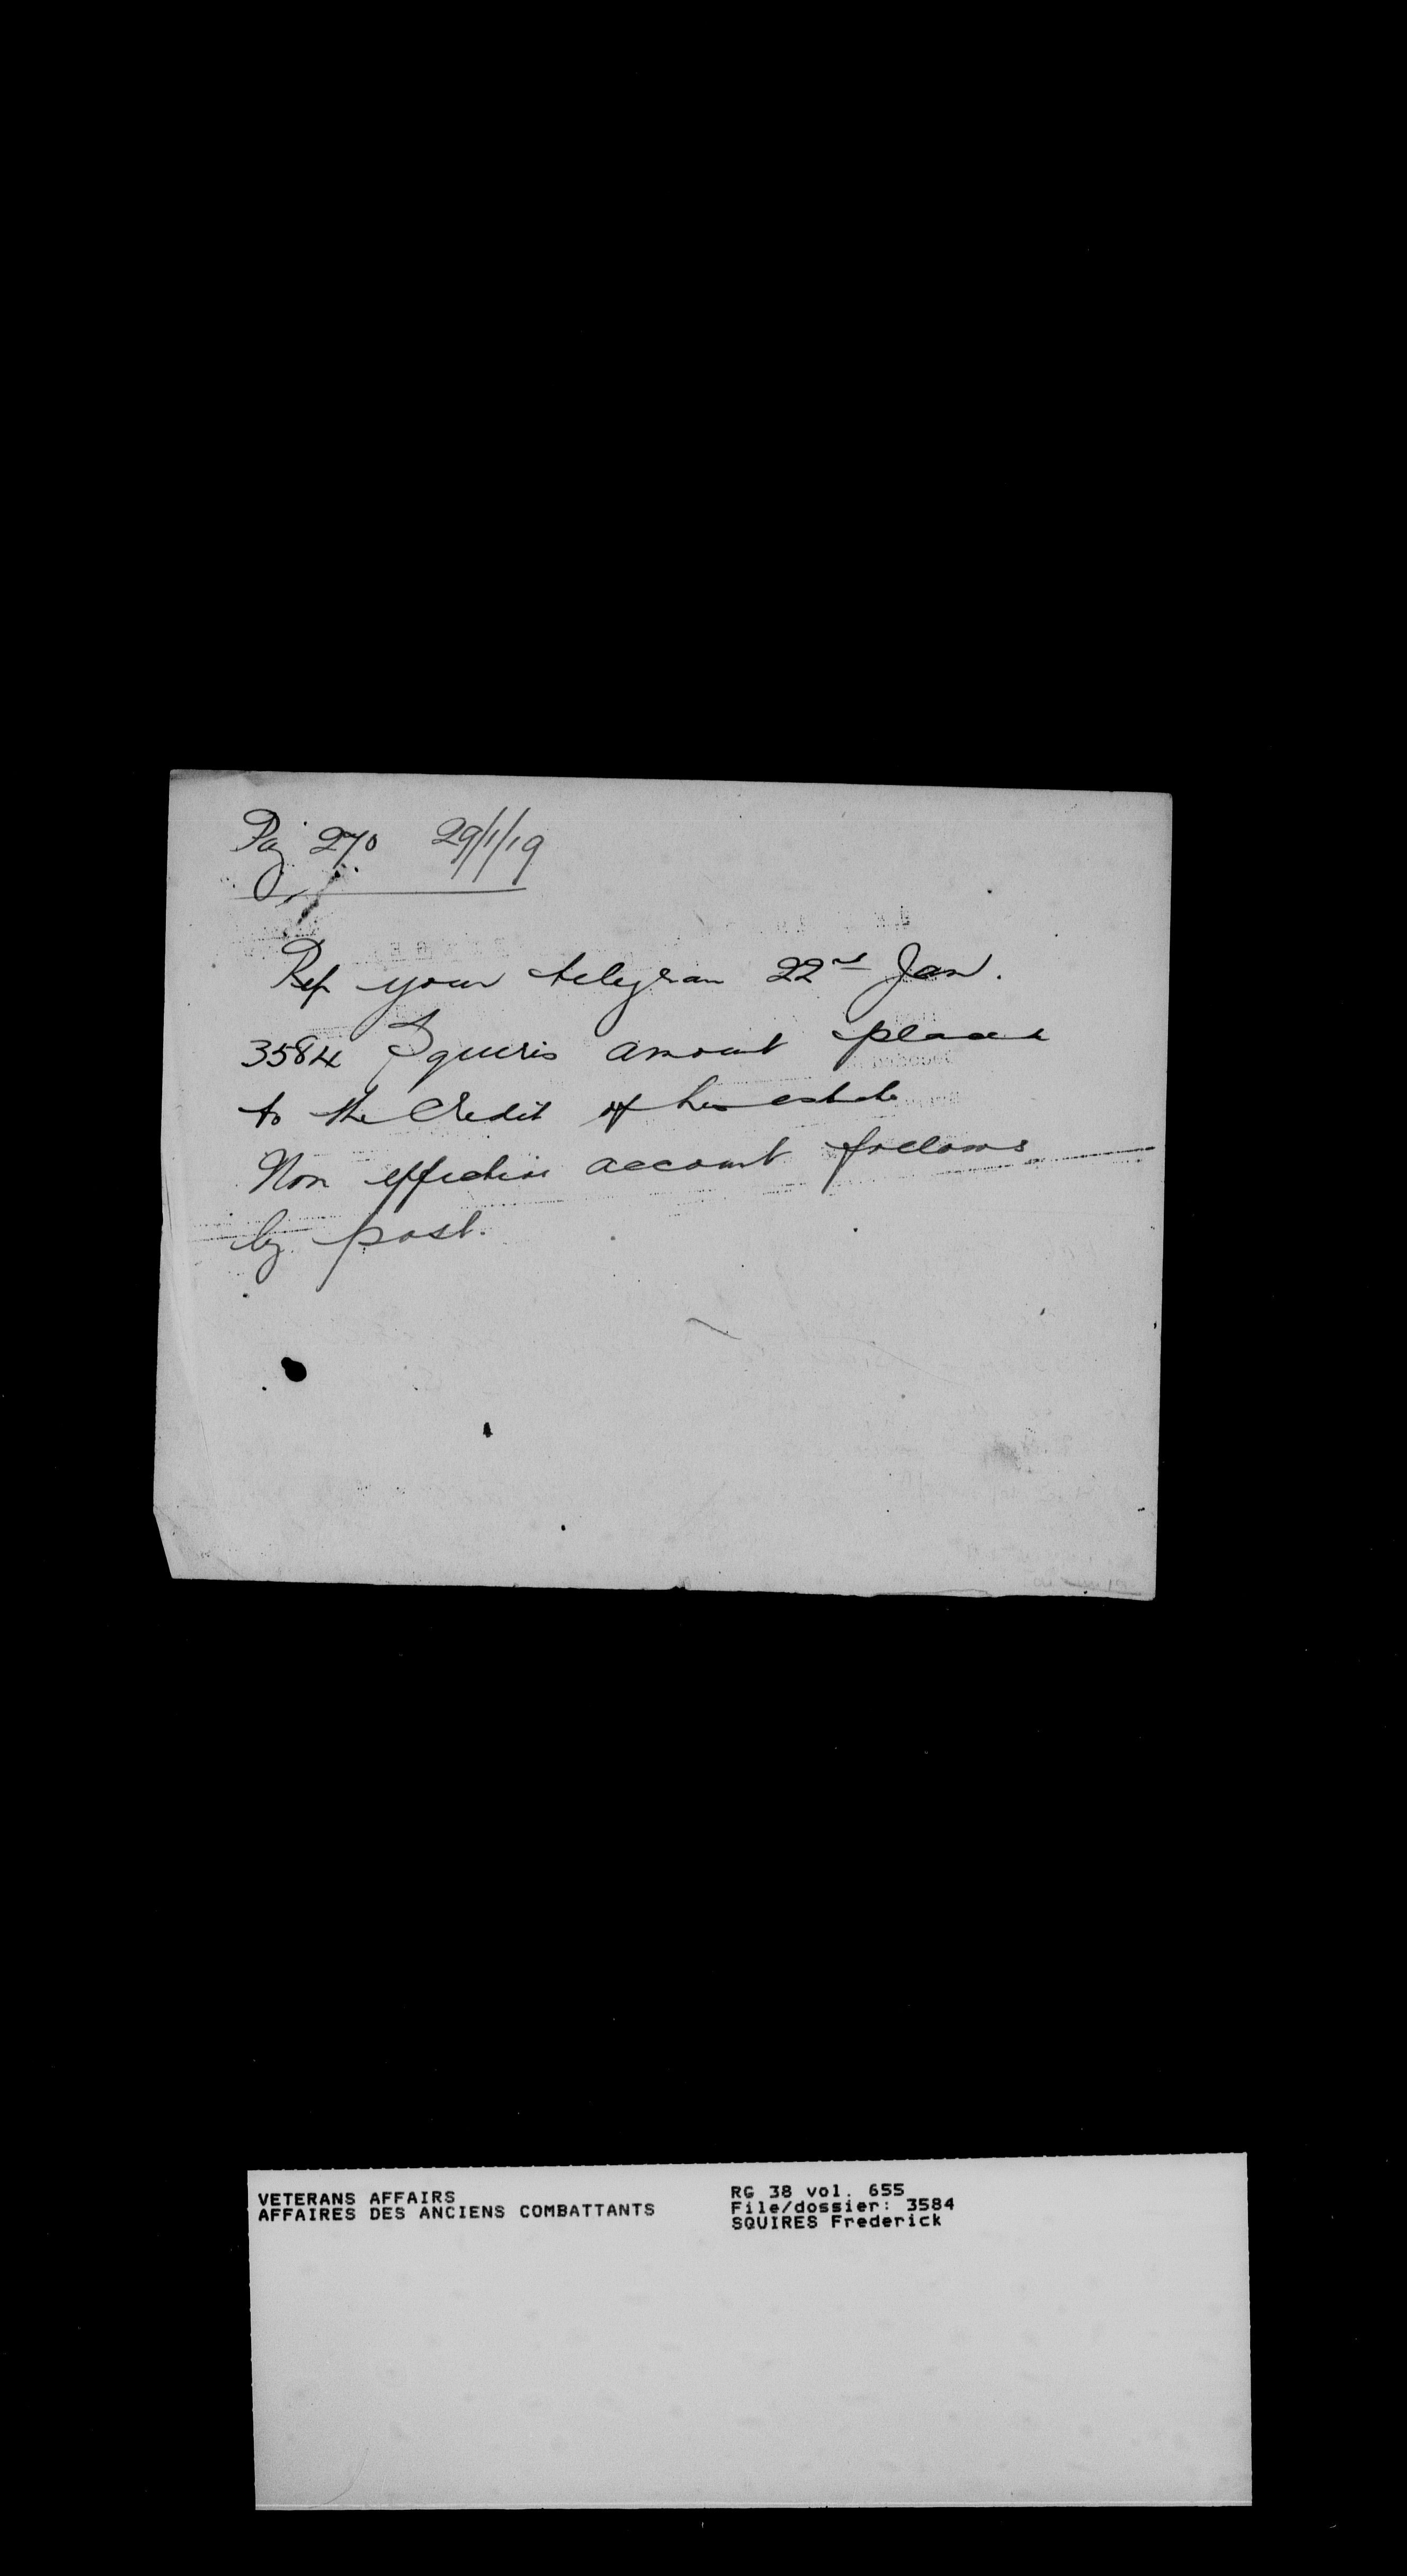 Pay 270 29/1/19
Ref your telegram 22nd Jan.
3584 Squires amount placed
to the Credit of his estate
Non effective account follows
by post.
VETERANS AFFAIRS
AFFAIRES DES ANCIENS COMBATTANTS
RG 38 vol. 655
File/dossier: 3584
SQUIRES Frederick